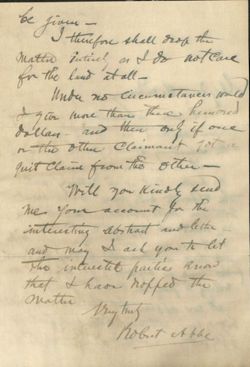 be given –
I therefore shall drop the
matter entirely as I do not care
for the land at all –
Under no circumstances would
I give more than three hundred
dollars – and then only if one
or the other claimant got a
quit claim from the other –
Will you kindly send
me your account for the
interesting abstract and letter –
and may I ask you to let
the interested parties know
that I have dropped the
matter
Very truly
Robert Abbe